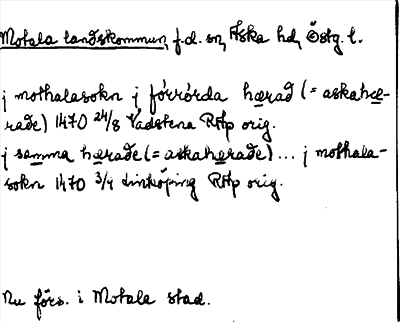 Motala landskommun, f.d. sn, Aska hd, Östg. l.
j mothalasokn j förrörda hærad (= askahe-
rade) 1470 24/8 Vadstena RAp orig.
j samma hærade (= askaherade) ... j mothala-
sokn 1470 3/4 Linköping RAp orig.
Nu förs. i Motala stad.